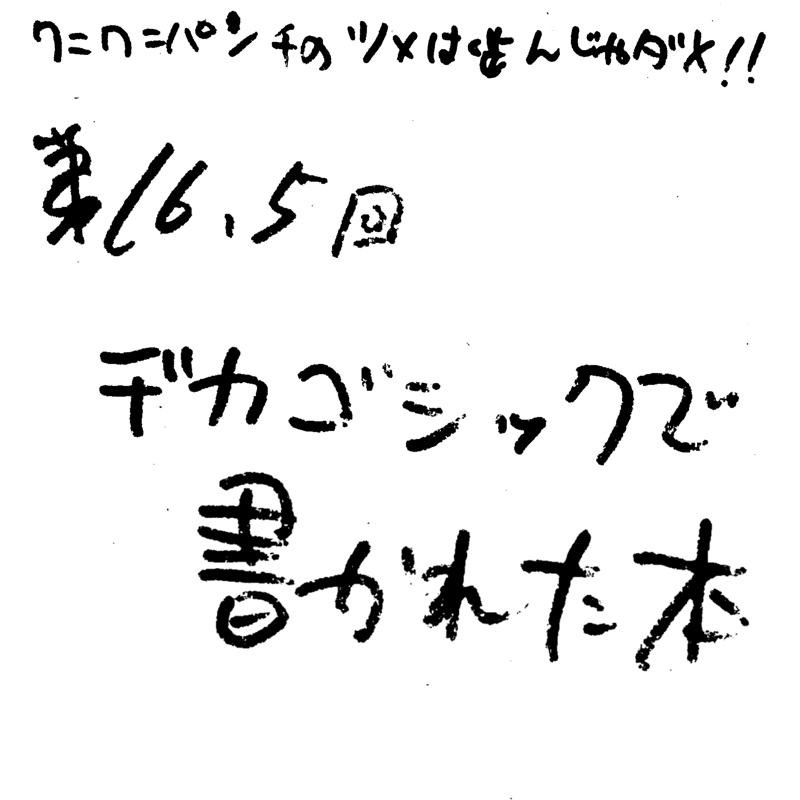 ワニワニパンチのツメは噛んじゃダメ!!
第16.5回
デカゴシックで
書かれた本